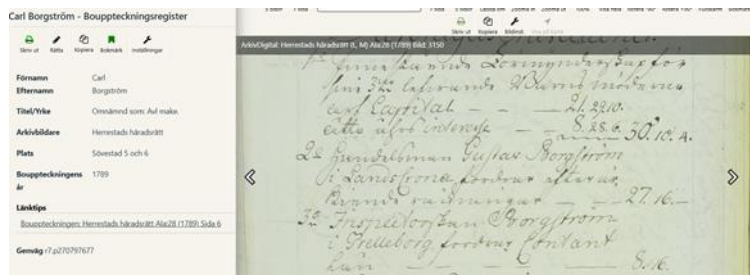 Carl Borgström - Bouppteckningsregister
Skriv ut Rätta Kopiera Bokmärk Inställningar
Förnamn Carl
Efternamn Borgström
Titel/Yrke Omnämnd som: Avl make.
Arkivbildare Herrestads häradsrätt
Plats Sövestad 5 och 6
Bouppteckningens år 1789
Länktips
Bouppteckningen: Herrestads häradsrätt AIa:28 (1789) Sida 6
Genväg r7.p270797677
Skriv ut Kopiera Bildinst.
ArkivDigital: Herrestads häradsrätt (L, M) AIa:28 (1789) Bild: 3150
1o innestående Förmynderskap för
sine 3ne
Capital - - - 21.29.10.
interesse - - 8.28.6. 30.10.4.
2o Handelsman Gustav Borgström
i Landscrona fordrar efter
räkningar - - - 27.16.-
3o Inspectorskan Borgström
i Trelleborg fordrar Contant
Lån - - - 8.16.